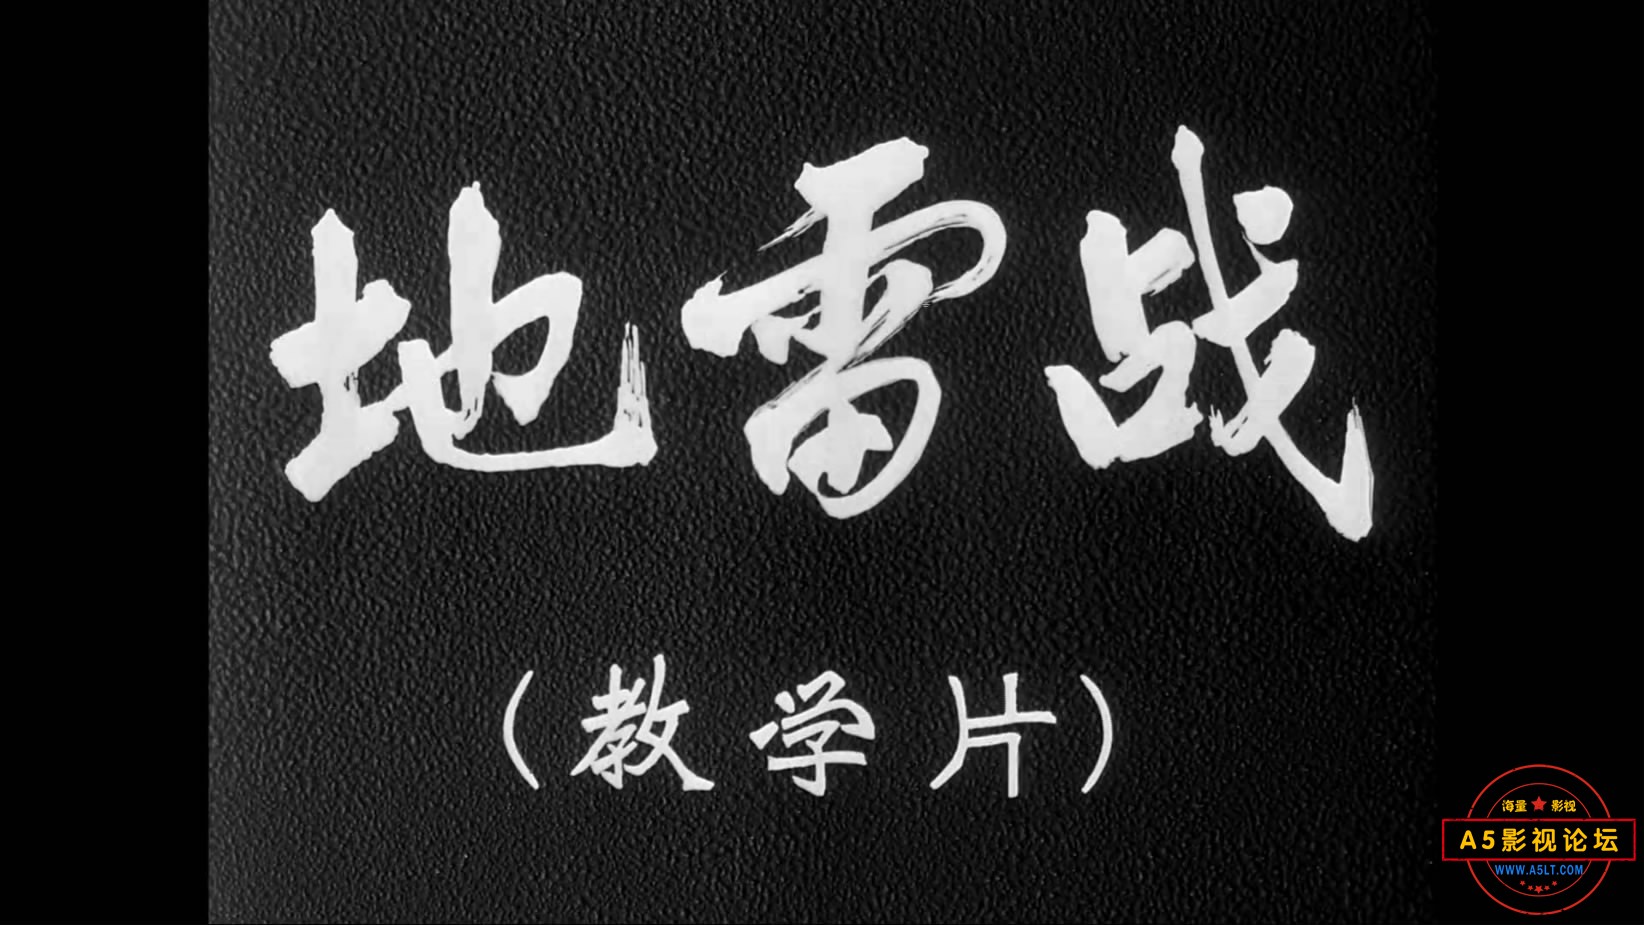 地雷战
（教学片）
海量★影视
A5影视论坛
WWW.A5LT.COM